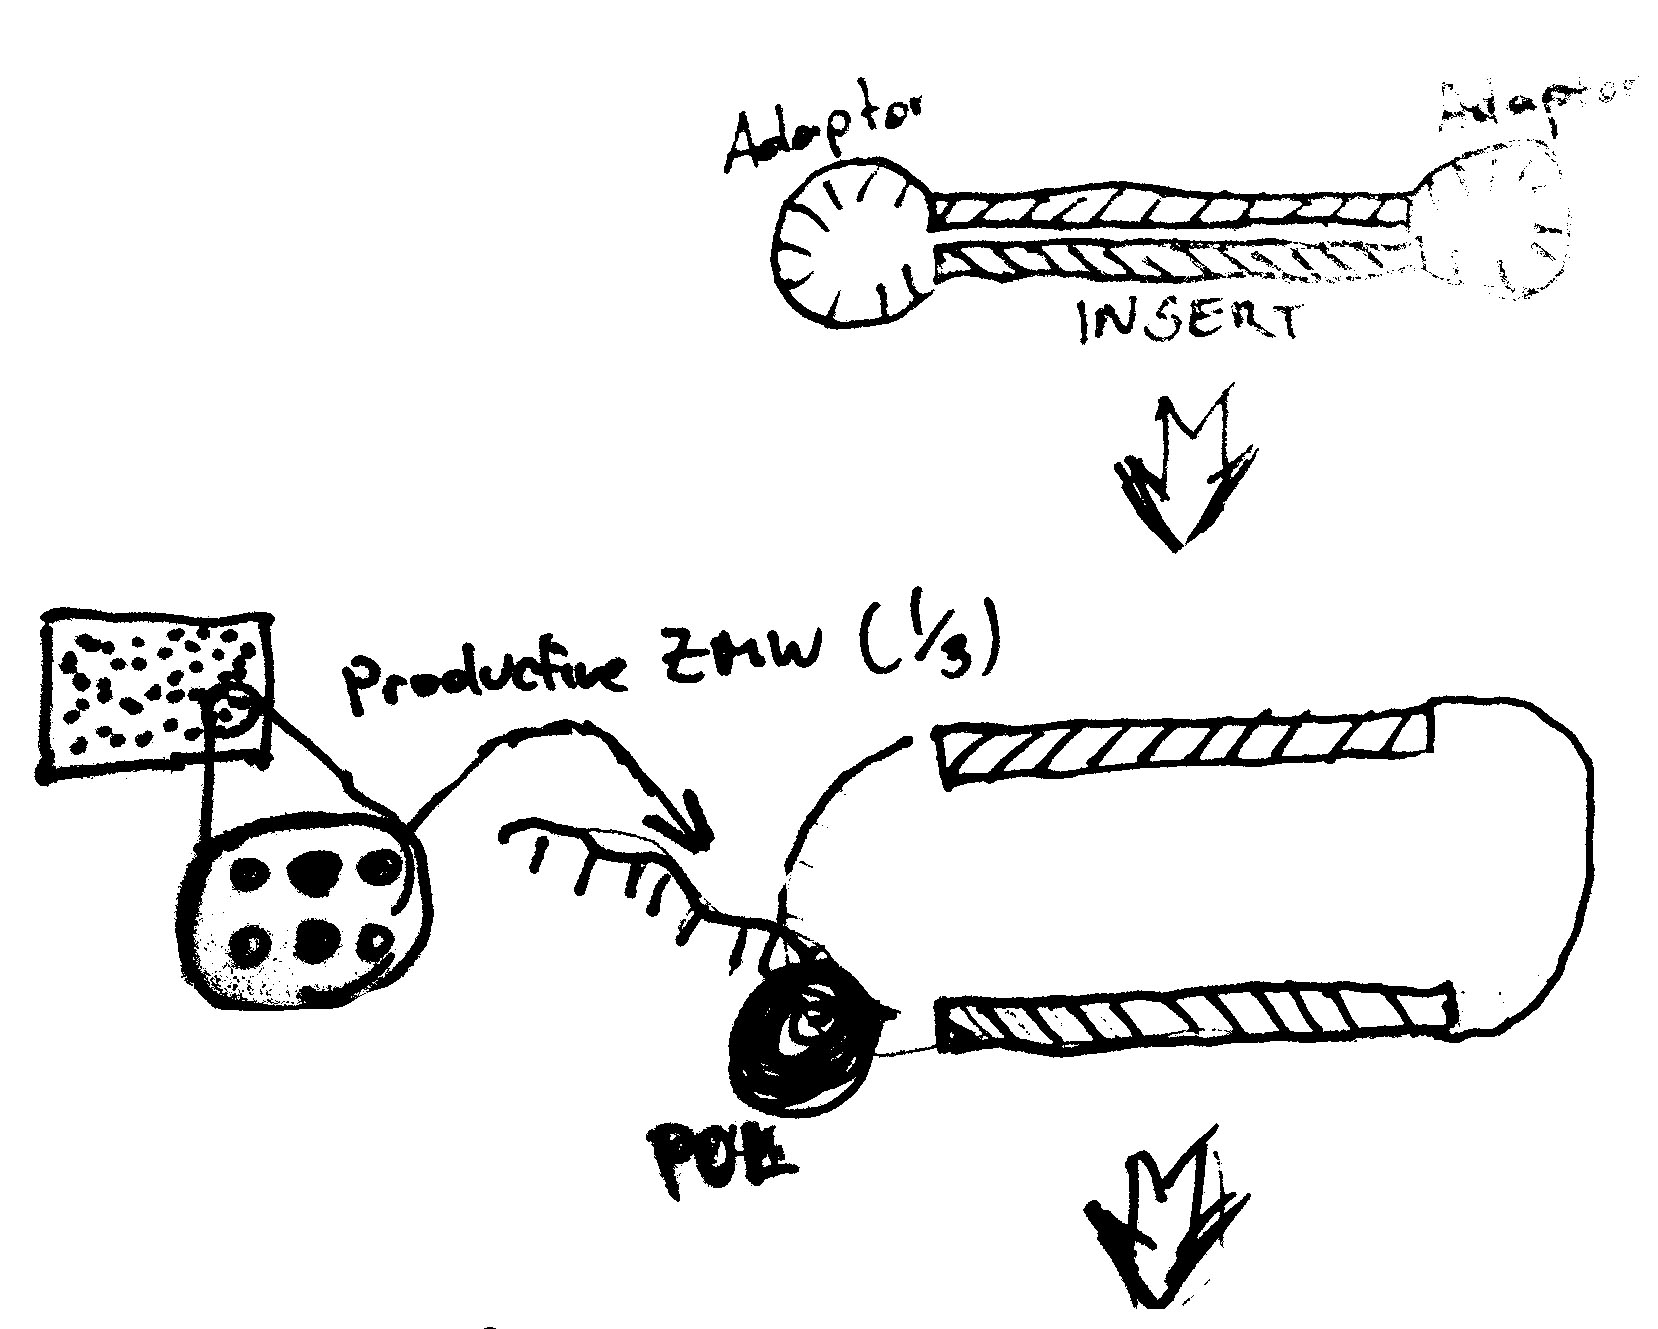 Adaptor
Adaptor
INSERT
Productive ZMW (1/3)
POLL